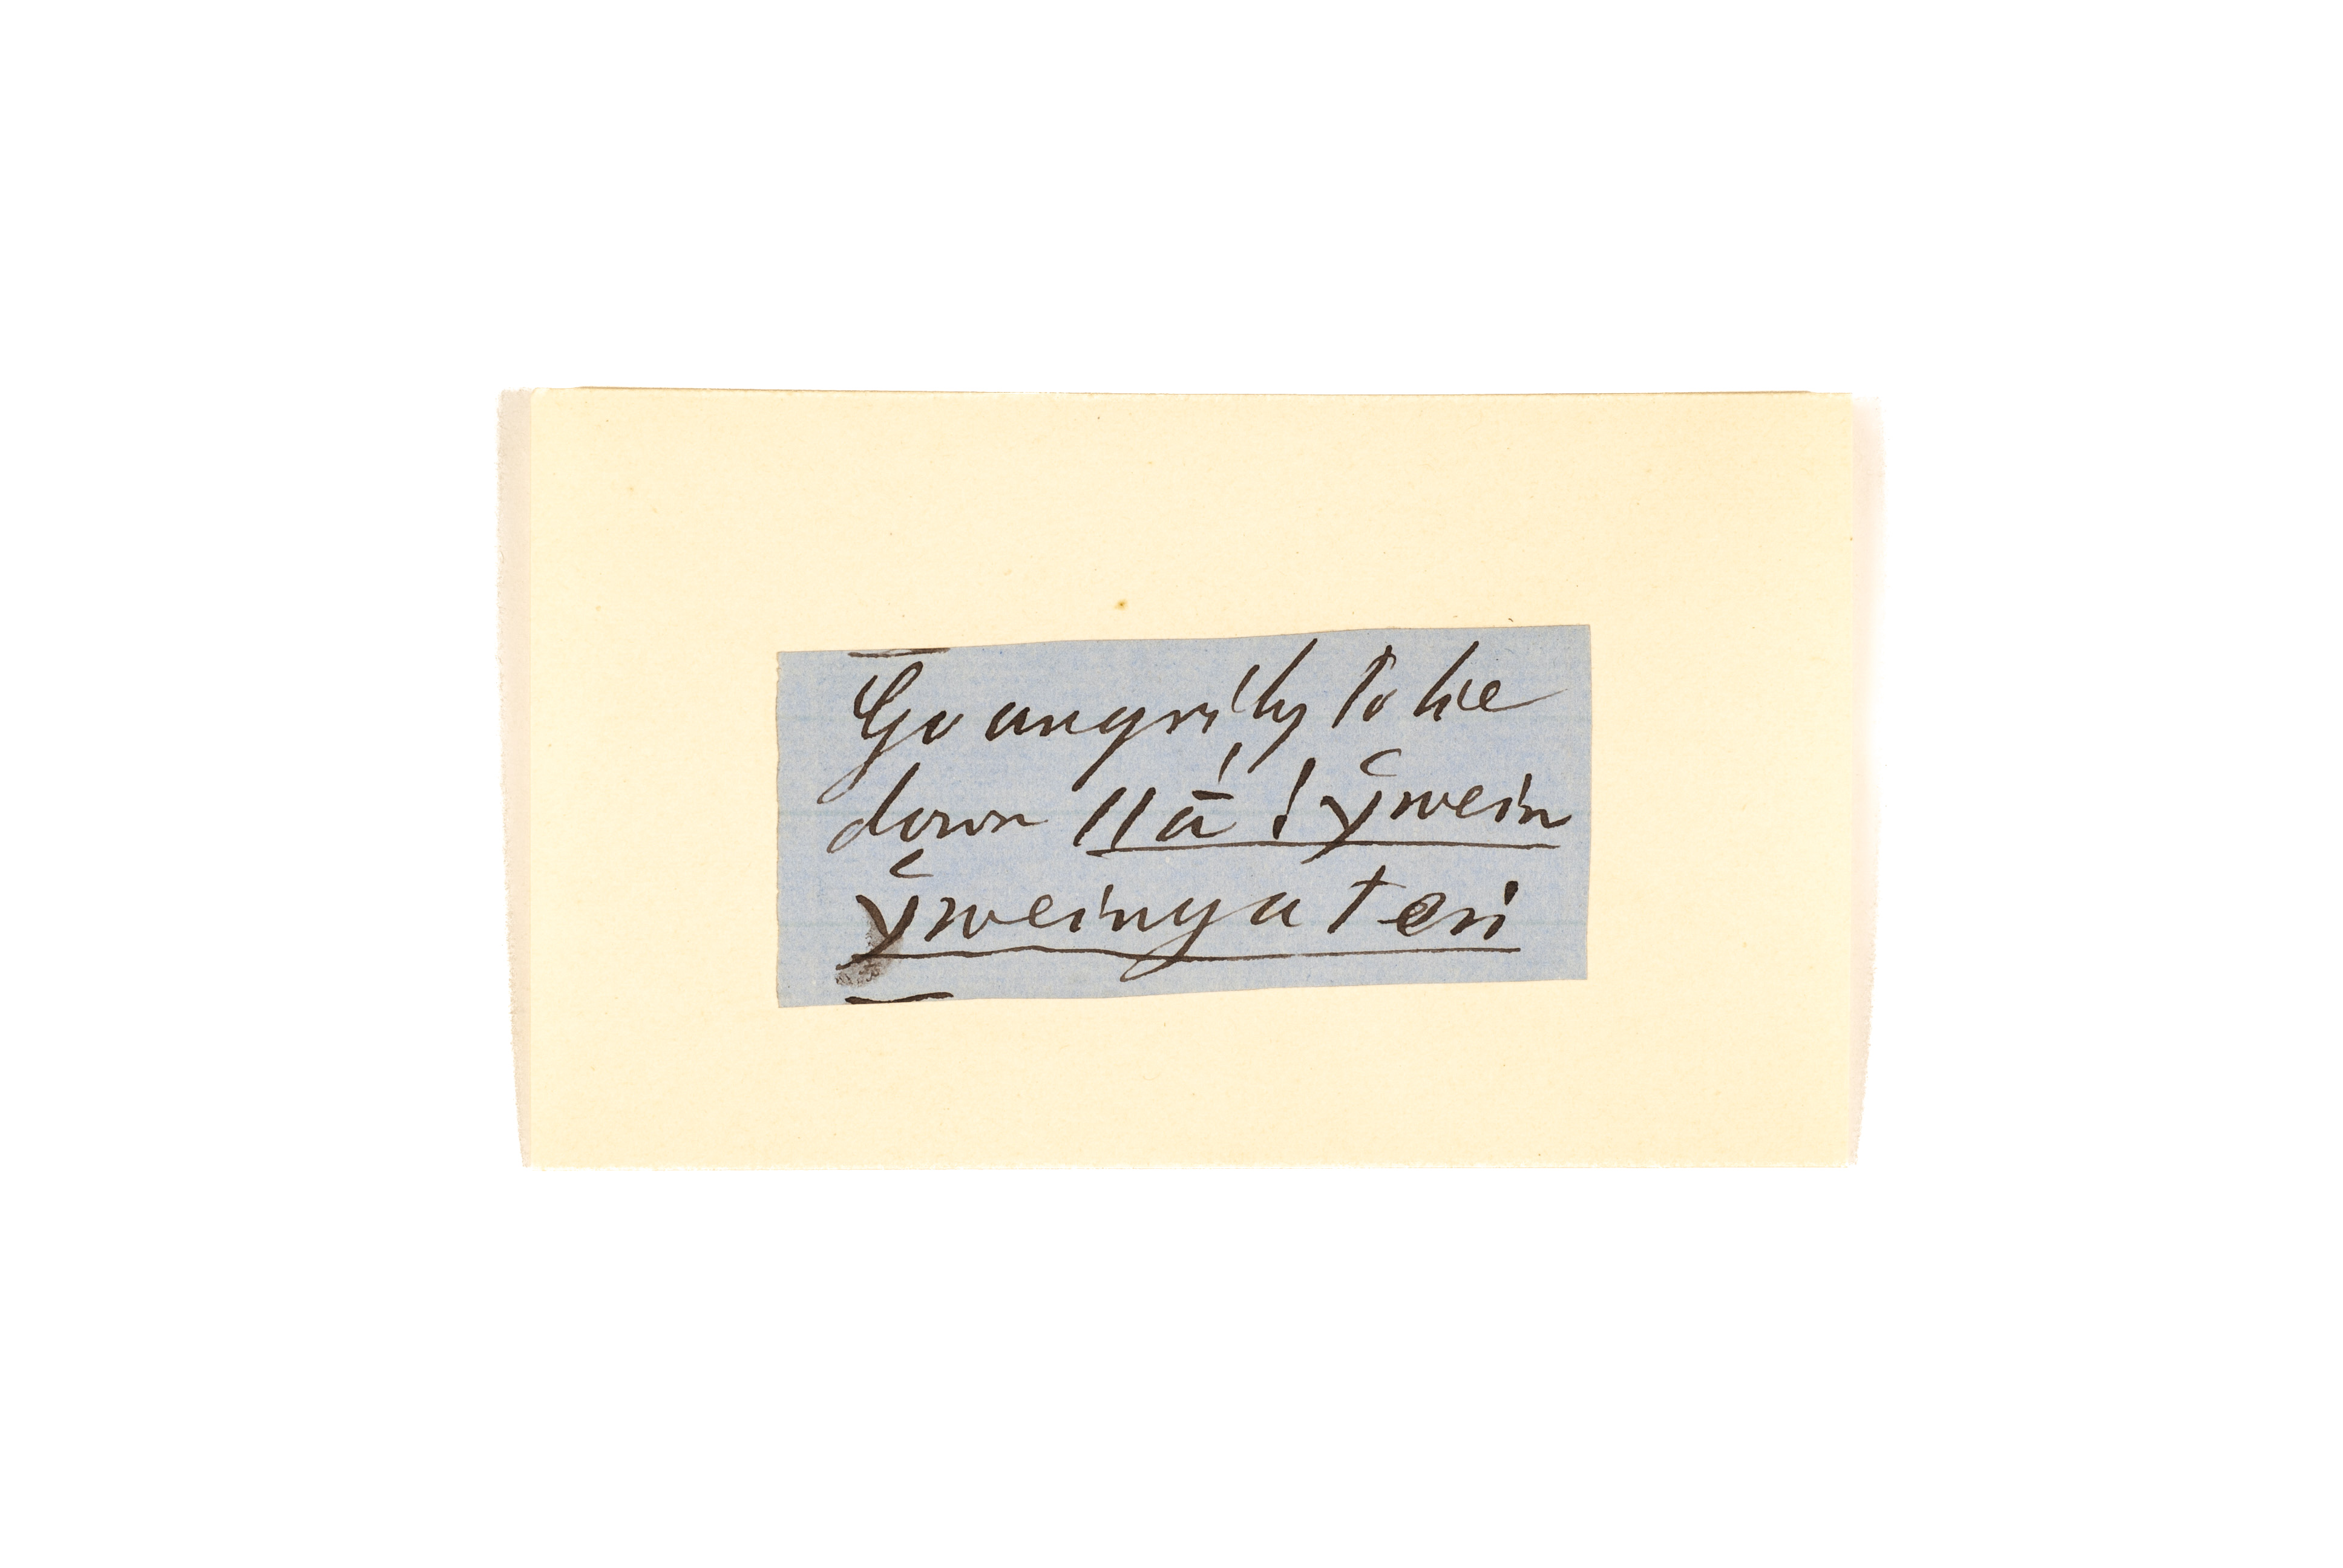 Go angrily to lie
down ǁā́ !χ̆wein
χ̆weinya teri